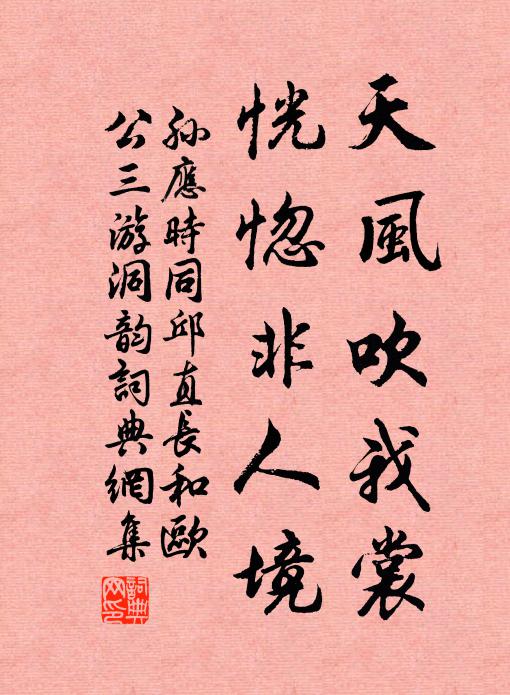 天風吹我裳
恍惚非人境
孙應時同邱直長和歐
公三游洞韵詞典網集
詞典网印